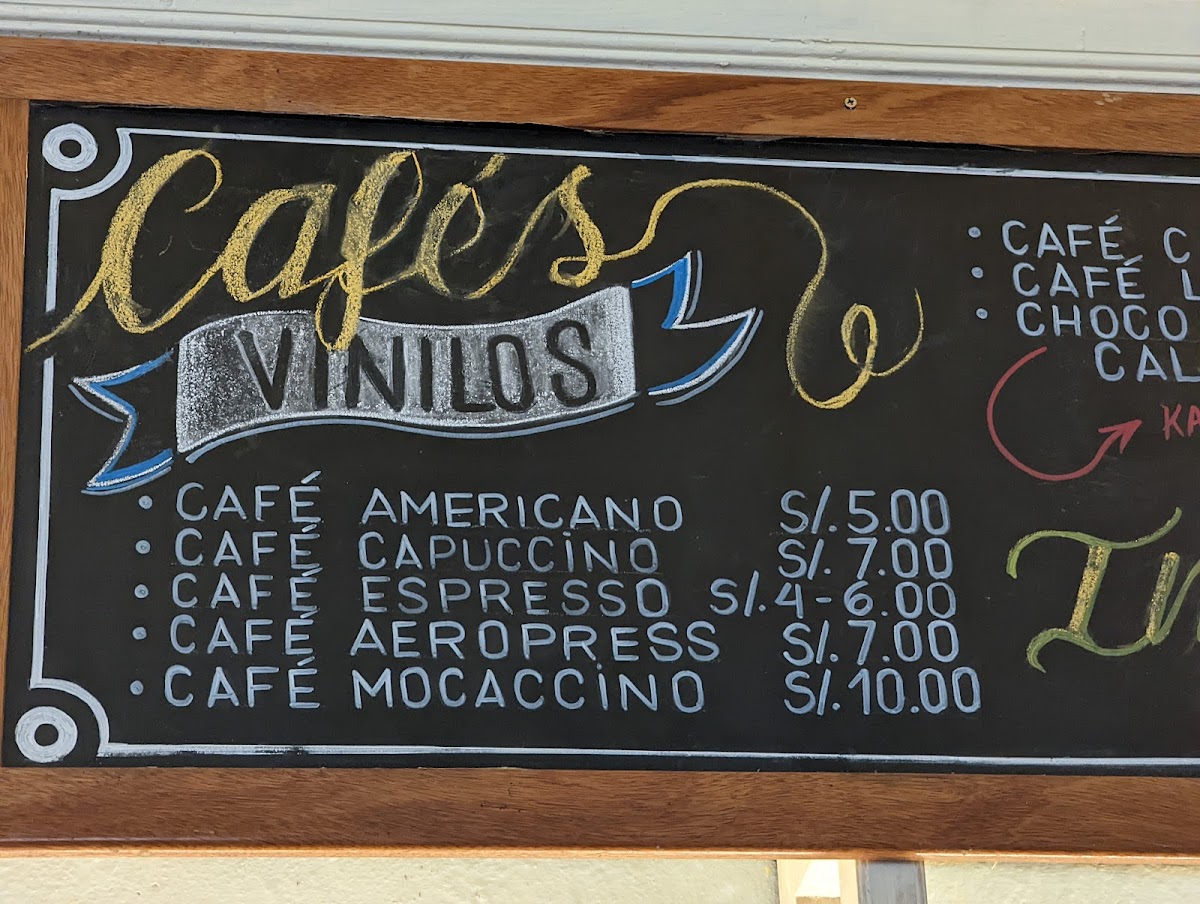 Cafés
VINILOS
• CAFÉ AMERICANO S/. 5.00
• CAFÉ CAPUCCINO S/. 7.00
• CAFÉ ESPRESSO S/. 4 - 6.00
• CAFÉ AEROPRESS S/. 7.00
• CAFÉ MOCACCINO S/. 10.00
• CAFÉ C
• CAFÉ L
• CHOCO
CAL
KA